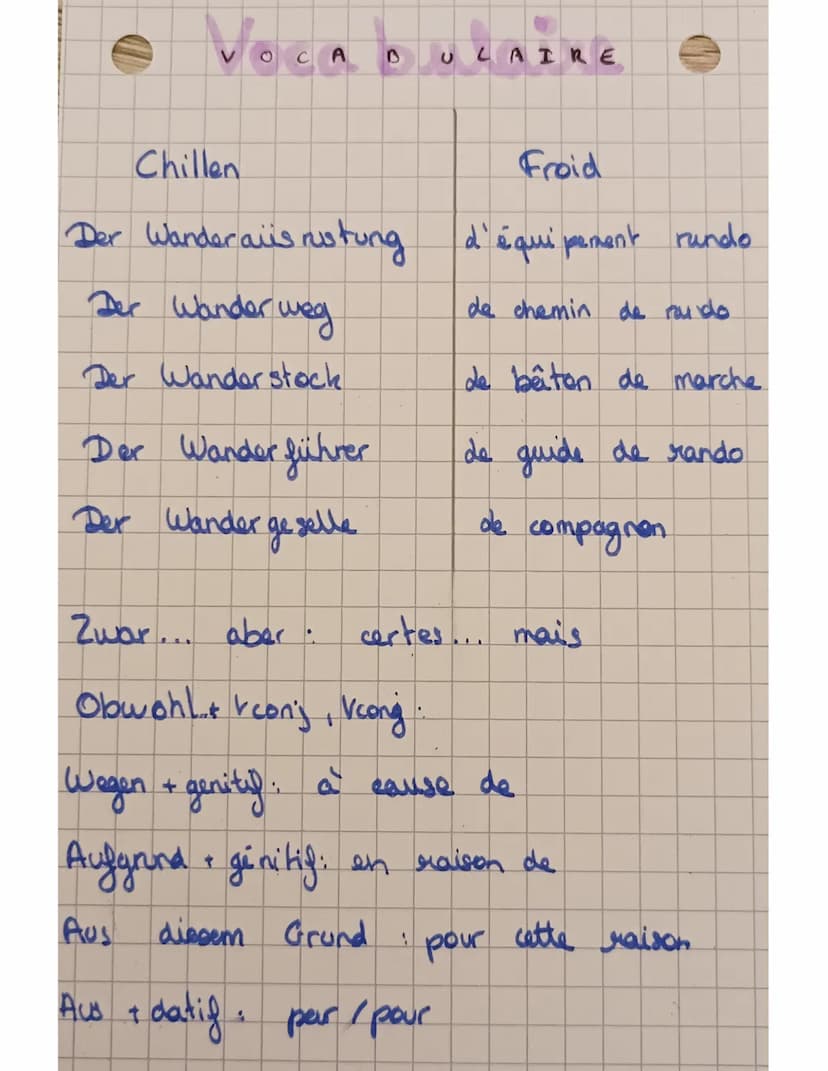 Vocabulaire
VOCABULAIRE
Chillen Froid
Der Wanderaüsrustung d'équipement rundo
Der Wanderweg de chemin de rando
Der Wanderstock de bâton de marche
Der Wanderführer de guide de rando
Der Wandergeselle de compagnon
Zwar... aber : certes... mais
Obwohl..+ Vconj, Vconj :
Wegen + genitif : à cause de
Aufgrund + génitif : en raison de
Aus diesem Grund : pour cette raison
Aus + datif : par / pour